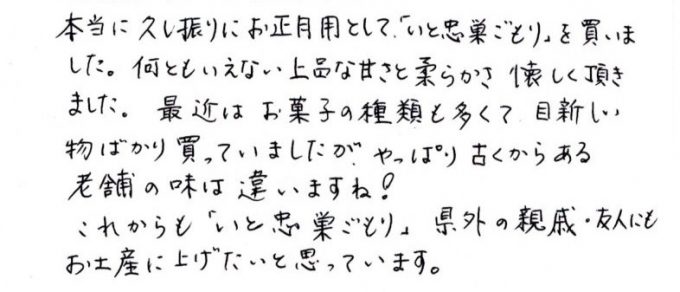 本当に久し振りにお正月用として、「いと忠巣ごもり」を買いま
した。何ともいえない上品な甘さと柔らかさ 懐しく頂き
ました。最近はお菓子の種類も多くて 目新しい
物ばかり買っていましたが、やっぱり古くからある
老舗の味は違いますね!
これからも「いと忠 巣ごもり」 県外の親戚・友人にも
お土産に上げたいと思っています。